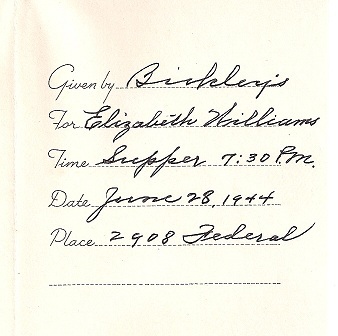 Given by Bickley's
For Elizabeth Williams
Time Supper 7:30 P.M.
Date June 28, 1944
Place 2908 Federal